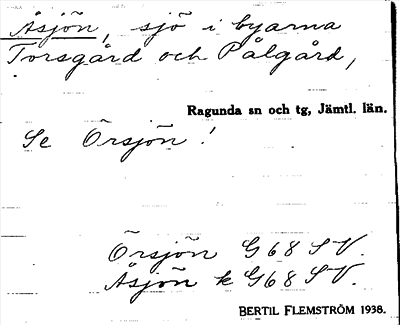 Åsjön, sjö i byarna
Torsgård och Pålgård,
Ragunda sn och tg, Jämtl. län.
Se Örsjön!
Örsjön G 68 SV.
Åsjön k G 68 SV.
BERTIL FLEMSTRÖM 1938.